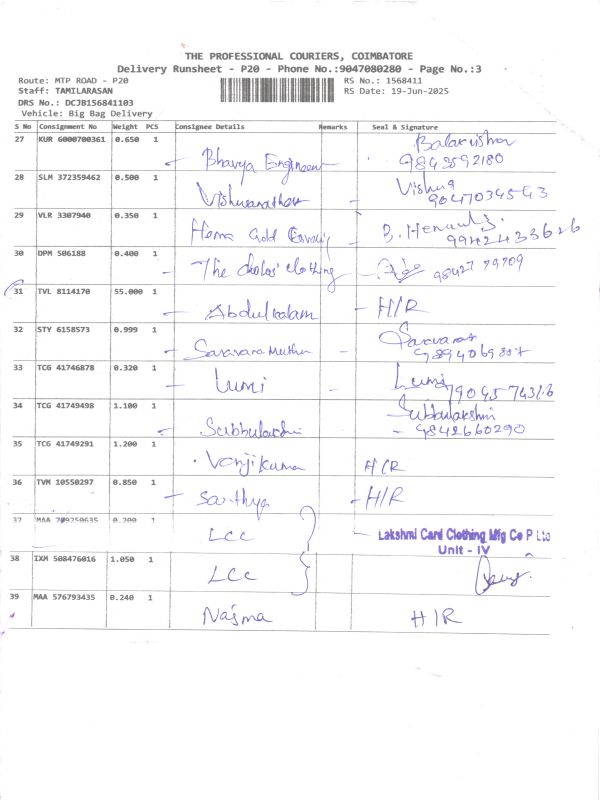 THE PROFESSIONAL COURIERS, COIMBATORE
Delivery Runsheet - P20 - Phone No.:9047080280 - Page No.:3
Route: MTP ROAD - P20
RS No.: 1568411
Staff: TAMILARASAN
RS Date: 19-Jun-2025
DRS No.: DCJB156841103
Vehicle: Big Bag Delivery
S No Consignment No Weight PCS Consignee Details Remarks Seal & Signature
27 KUR 6000700361 0.650 1
Bhavya Engineer
9843592180
28 SLM 372359462 0.500 1
Vishwanathan Vishwa
9047034543
29 VLR 3307940 0.350 1
Hema Gold
9942433626
30 DPM 506188 0.400 1
The clothing
31 TVL 8114170 55.000 1
Abdulkalam - H/R
32 STY 6158573 0.999 1
Saravana Muthu - Saravana
33 TCG 41746878 0.320 1
Lumi Lumi
34 TCG 41749498 1.100 1
Subbulakshmi Subbulakshmi
9842660290
35 TCG 41749291 1.200 1
Vanjikuma H/R
36 TVM 10550297 0.850 1
Santhya - H/R
37 MAA 709250635 0.200 1
LCC Lakshmi Card Clothing Mfg Co P Ltd
Unit - IV
38 IXM 508476016 1.050 1
LCC
39 MAA 576793435 0.240 1
Najma H/R